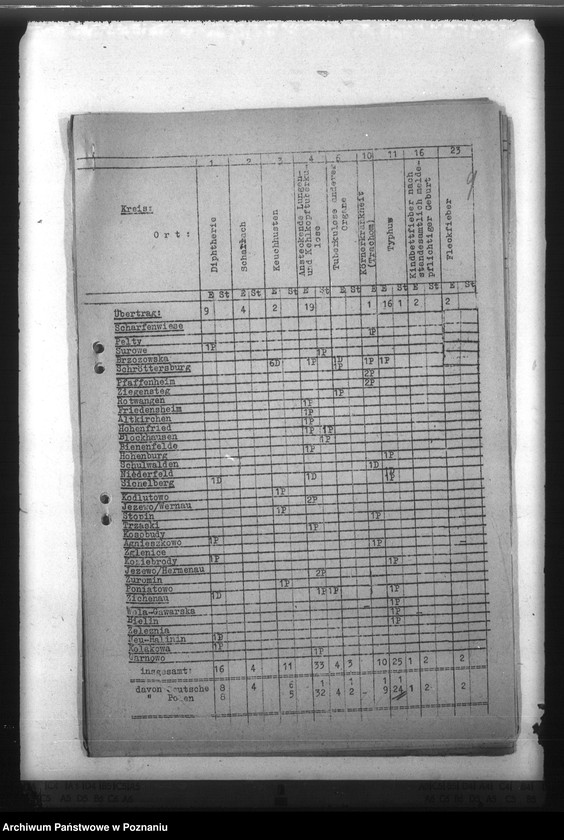 1 2 3 4 6 10 11 16 23
9
Kreis:
Ort:
Diphtherie
Scharlach
Keuchhusten
Ansteckende Lungen-
und Kehlkopftuberku-
lose
Tuberkulose anderer
Organe
Körnerkrankheit
(Trachom)
Typhus
Kindbettfieber nach
standesamtlich melde-
pflichtiger Geburt
Fleckfieber
E St E St E St E St E St E St E St E St E St
Übertrag: 9 4 2 19 1 16 1 2 2
Scharfenwiese 1P
Pelty
Surowe 1P 1P
Brzozowska 6D 1P 1D 1P 1P
Schröttersburg 1P
Pfaffenheim 2P
Ziegensteg 1P
Rotwangen 1P
Friedensheim 1P
Altkirchen 1P
Hohenfried 1P 1P
Blockhausen 1P
Bienenfelde 1P
Hohenburg 1P
Schulwalden 1D
Niederfeld 1P
Sichelberg 1D 1D 1P
Kodlutowo 1P
Jezewo/Wernau 2P
Stopin 1P 1P
Trzaski 1P
Kosobudy
Agnieszkowo 1P 1P
Zglenice
Koziebrody 1P 1P
Jezewo/Hermenau
Zuromin 1P 2P
Poniatowo 1P 1P 1P
Zichenau 1D 1P
Wola-Gawarska 1P
Bielin 1P
Zelechnia
Neu-Halinin 1P
Kolakowa 1P
Garnowo 1P
insgesamt: 16 4 11 33 4 3 10 25 1 2 2
davon Deutsche 8 4 6 1 1 1 1
" Polen 8 5 32 4 2 9 24 1 2 2
Archiwum Państwowe w Poznaniu